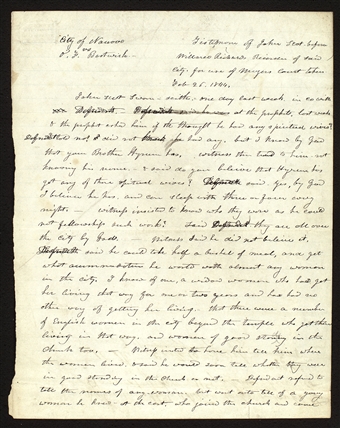 City of Nauvoo
vs
P. T. Bostwick
Testimony of John Scot before
Willard Richards Recorder of said
City: for use of Mayors Court taken
Feb. 25. 1844.
John Scott Sworn - saith, one day last week in
at the prophets, last week
& the prophet asked him if he thought he had any spiritual wives?
Defendant said no I did not he had any, but I know by God
that your Brother Hyrum has, witness then to him not
knowing his name. & said do you believe that Hyrum has
got any of those spiritual wives? Defendt said Yes, by God
I believe he has, and can sleep with three or four every
night — witness insisted to know who they were as he could
not fellowship such work? Said Defendant they are all over
the city by God. — Witness Said he did not believe it.
Defendt said he could take half a bushel of meal, and get
what accommodation he wanted with almost any woman
in the city. I know of one, a widow woman who had got
her living that way for one or two years and has had no
other way of getting her living. that there were a number
of English women in the city beyond the temple who got their
living in that way, and women of good standing in the
Church too, — Witness to have him tell him, where
the women lived, & said he would soon tell whether they were
in good standing in the Church or not, — Defendant refused to
tell the names of any woman, but went onto tell of a young
woman he knew at the east, who joined the church and came